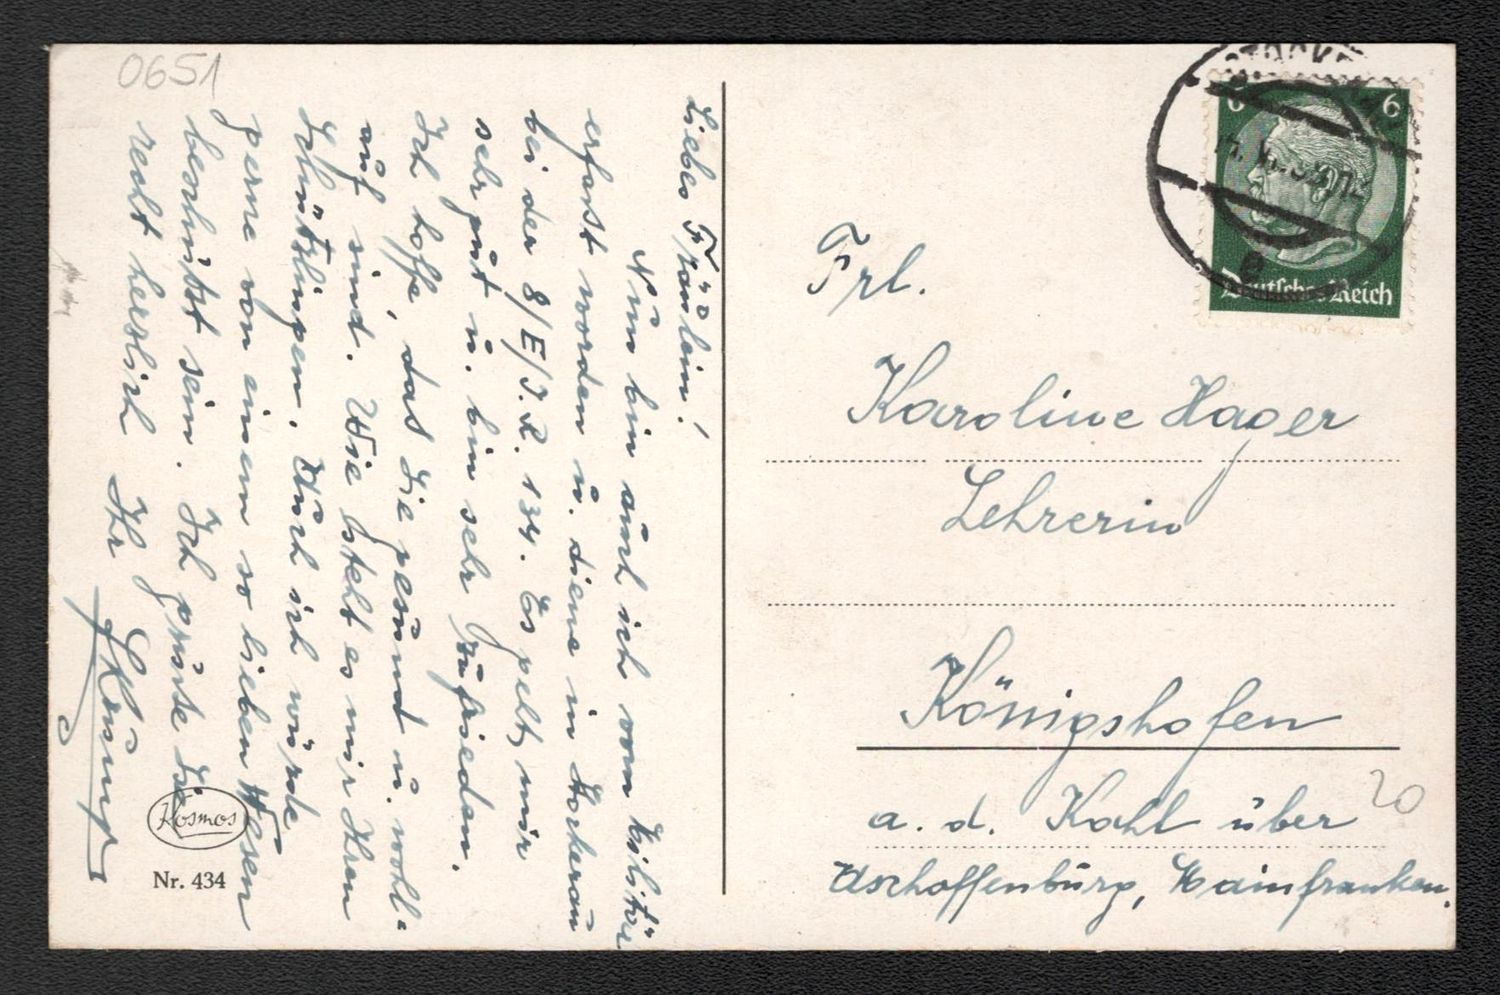 0651
Liebes Fräulein!
Nun bin auch ich vom Militär
erfast worden u. diene in Stockerau
bei der 8/E/I.R. 134. Es geht mir
sehr gut u. bin sehr zufrieden.
Ich hoffe, das Sie gesund u. wohl-
auf sind. Wie steht es mir Ihren
Schützlingen. Auch ich würde
gerne von einem so lieben Wesen
beschützt sein. Ich grüße Sie
recht herzlich Ihr
Kosmos
Nr. 434
STOCKE
6 6
Deutsches Reich
e
Frl.
Karoline Hager
Lehrerin
Königshofen
a. d. Kahl über
Aschaffenburg, Mainfranken.
20